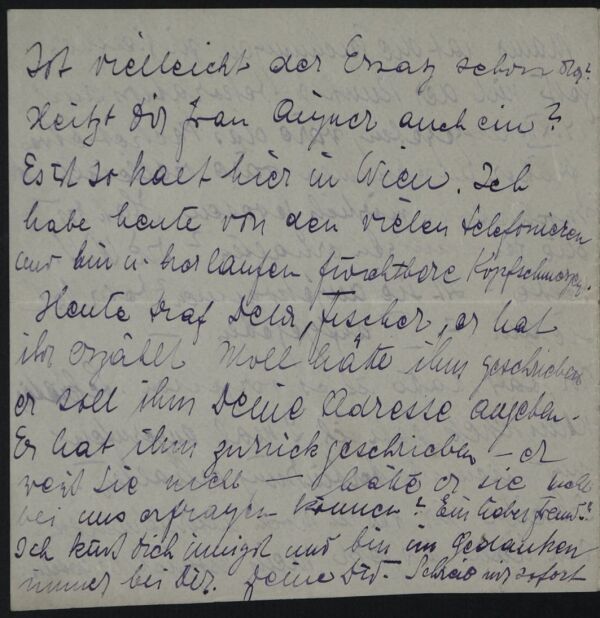 Ist vielleicht der Ersatz schon da?
Heitzt Dir Frau Aigner auch ein?
Es ist so kalt hier in Wien. Ich
habe heute von den vielen telefonieren
und hin u. herlaufen furchtbare Kopfschmerzen.
Heute traf Fischer, er hat
ihr erzählt Moll hätte ihm geschrieben
er soll ihm Deine Adresse angeben.
Er hat ihm zurückgeschrieben – er
weiß sie nicht — hätte er sie nicht
bei uns erfragen können? Ein lieber Freund!
Ich küß Dich innigst und bin in Gedanken
immer bei Dir. Deine Schreib mir sofort